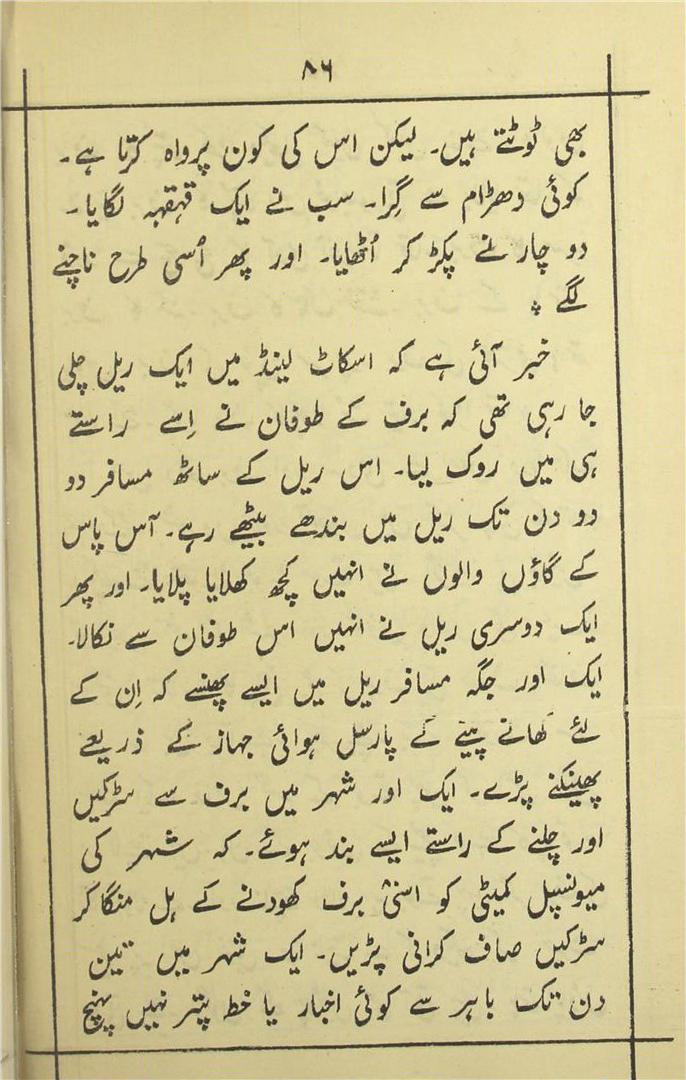 ۸۶
بھی ٹوٹتے ہیں۔ لیکن اس کی کون پرواہ کرتا ہے۔
کوئی دھڑام سے گِرا۔ سب نے ایک قہقہہ لگایا۔
دو چار نے پکڑ کر اُٹھایا۔ اور پھر اُسی طرح ناچنے
لگے ؞
خبر آئی ہے کہ اسکاٹ لینڈ میں ایک ریل چلی
جا رہی تھی کہ برف کے طوفان نے اِسے راستے
ہی میں روک لیا۔ اس ریل کے ساٹھ مسافر دو
دو دن تک ریل میں بندھے بیٹھے رہے۔ آس پاس
کے گاؤں والوں نے انہیں کچھ کھلایا پلایا۔ اور پھر
ایک دوسری ریل نے انہیں اس طوفان سے نکالا۔
ایک اور جگہ مسافر ریل میں ایسے پھنسے کہ اِن کے
لئے کھانے پینے کے پارسل ہوائی جہاز کے ذریعے
پھینکنے پڑے۔ ایک اور شہر میں برف سے سڑکیں
اور چلنے کے راستے ایسے بند ہوئے۔ کہ شہر کی
میونسپل کمیٹی کو اسّی برف کھودنے کے ہل منگا کر
سڑکیں صاف کرانی پڑیں۔ ایک شہر میں تین
دن تک باہر سے کوئی اخبار یا خط پتر نہیں پہنچ